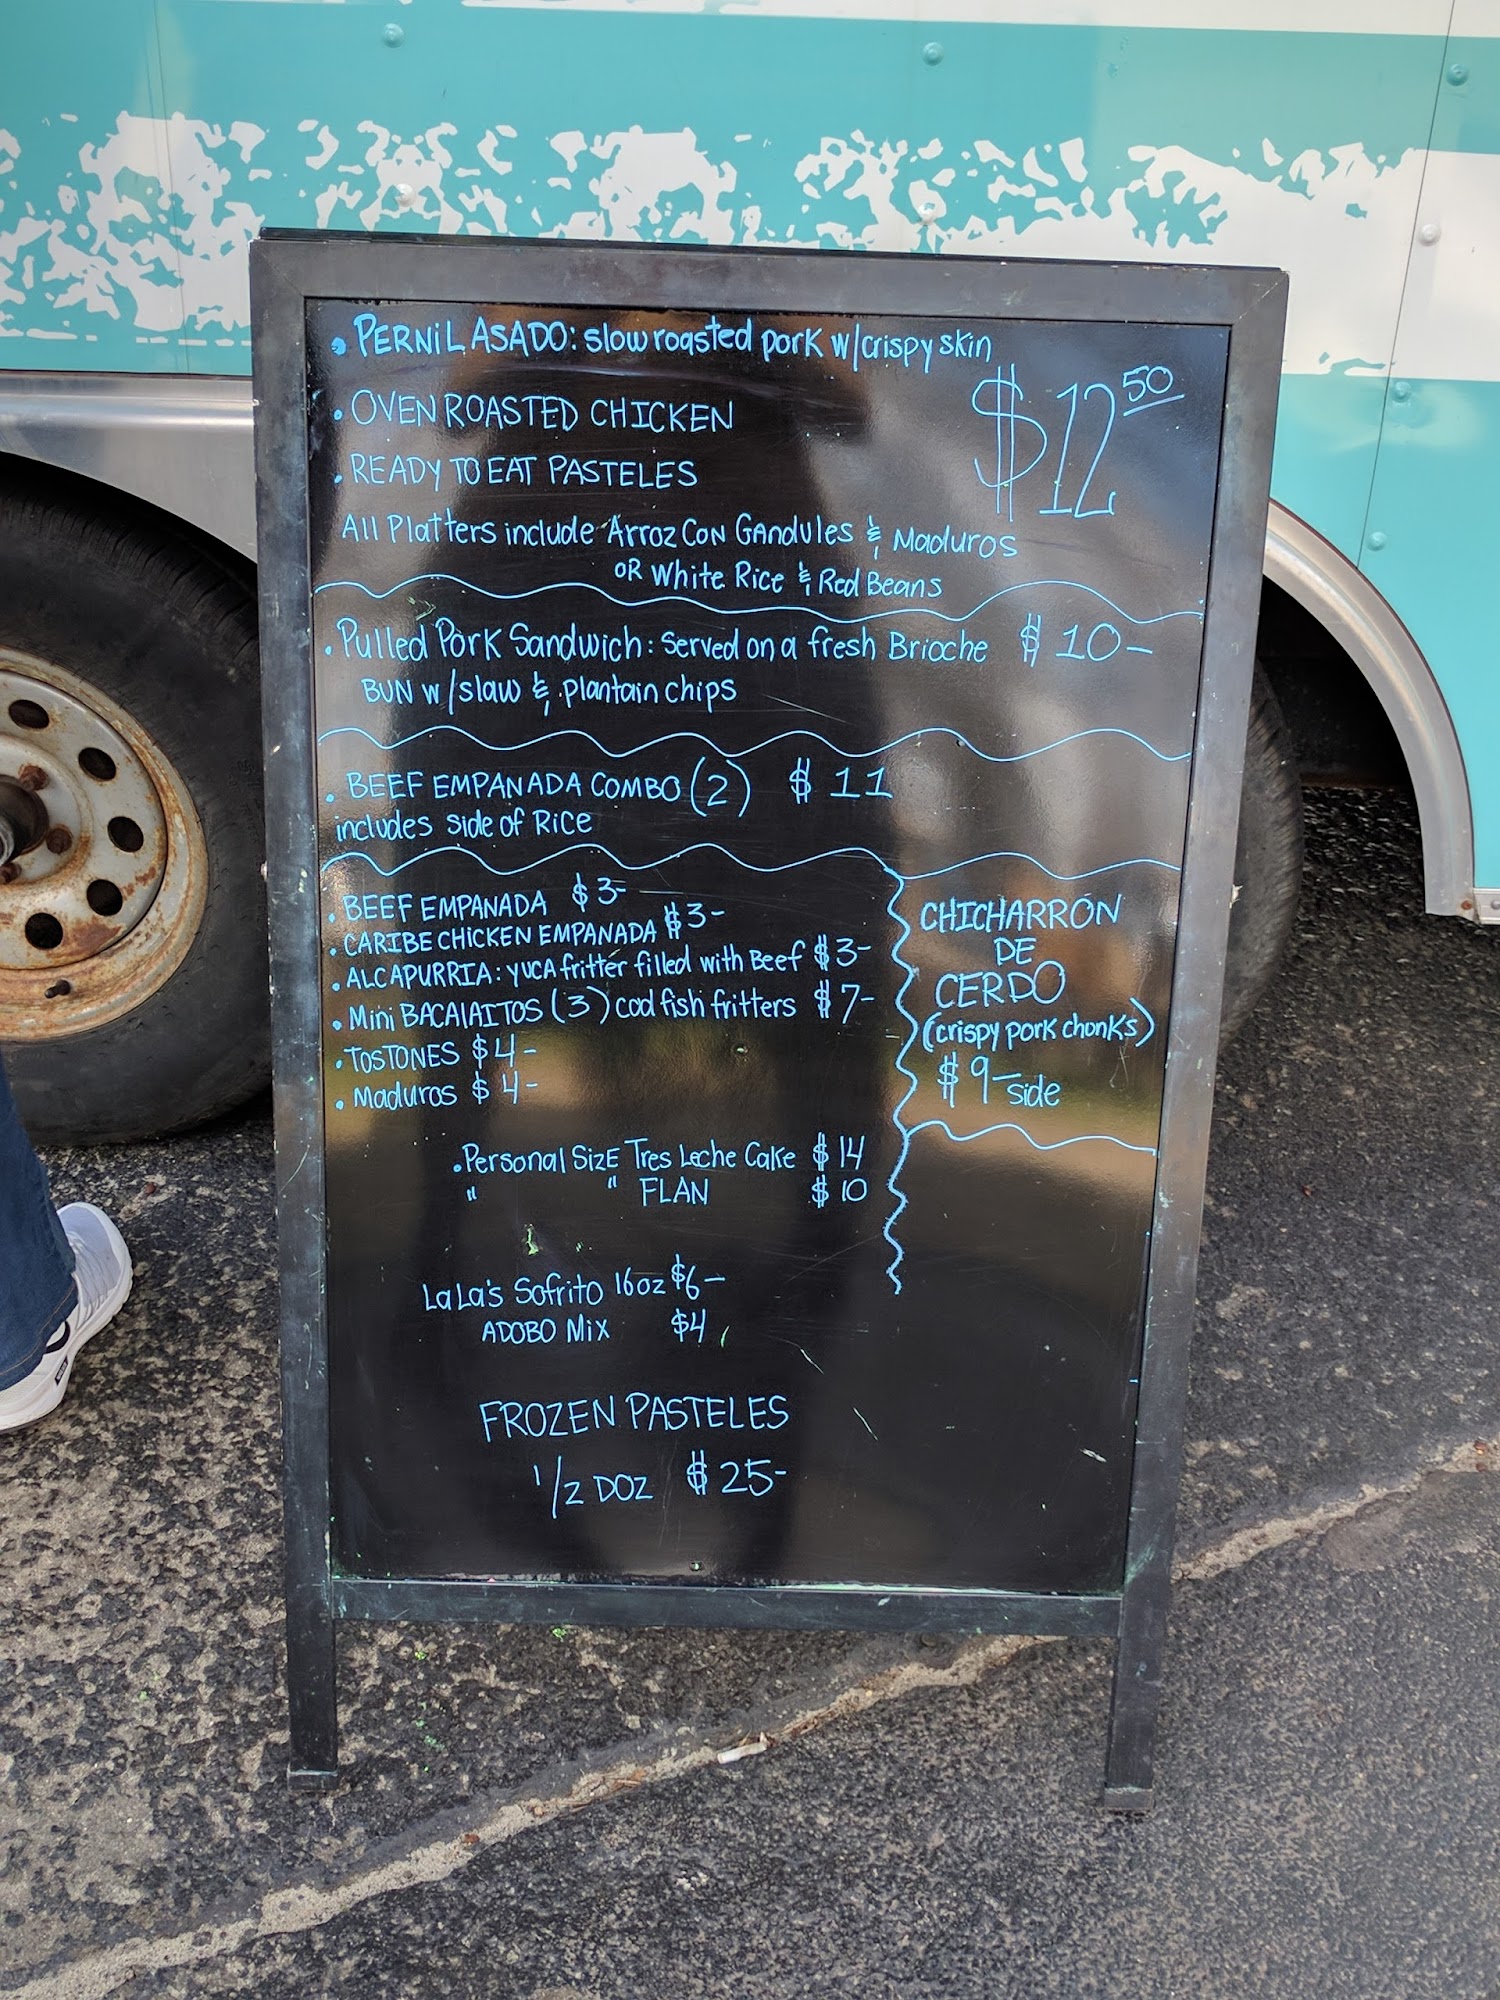 • PERNiL ASADO: slow roasted pork w/crispy skin
• OVEN ROASTED CHICKEN
$12 50
• READY TO EAT PASTELES
All Platters include Arroz Con Gandules & Maduros
OR White Rice & Red Beans
• Pulled Pork Sandwich: Served on a fresh Brioche $10-
BUN w/slaw & plantain chips
• BEEF EMPANADA COMBO (2) $11
includes side of Rice
• BEEF EMPANADA $3-
• CARIBE CHICKEN EMPANADA $3-
• ALCAPURRIA: YUCA fritter filled with Beef $3-
• Mini BACALAITOS (3) cod fish fritters $7-
• TOSTONES $4-
• Maduros $4-
CHICHARRÓN
DE
CERDO
(crispy pork chonks)
$9- side
• Personal SizE Tres Leche Cake $14
" " FLAN $10
LaLa's Sofrito 16oz $6-
ADOBO Mix $4
FROZEN PASTELES
1/2 DOZ $25-